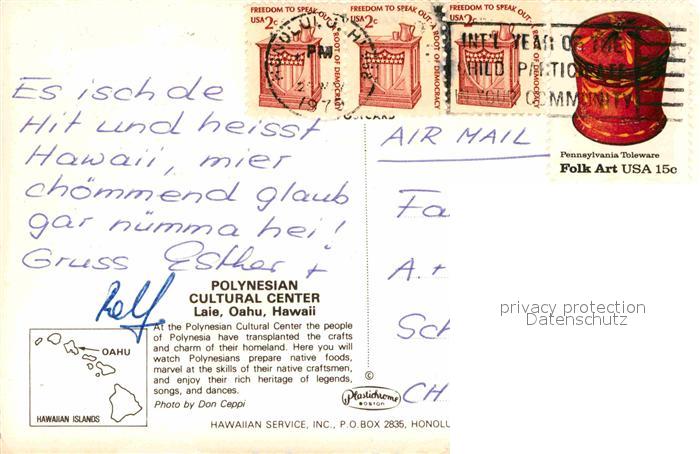 FREEDOM TO SPEAK OUT-A ROOT OF DEMOCRACY
USA 2c
FREEDOM TO SPEAK OUT-A ROOT OF DEMOCRACY
USA 2c
FREEDOM TO SPEAK OUT-A ROOT OF DEMOCRACY
USA 2c
HONOLULU, HI
PM
197
INT'L YEAR OF THE
CHILD PARTICIPATE
IN YOUR COMMUNITY
Pennsylvania Toleware
Folk Art USA 15c
POSTCARD
Es isch de
Hit und heisst
Hawaii, mier
chömmend glaub
gar nümma hei!
Gruss Esther +
Rolf
AIR MAIL
Fa
A. +
Sch
CH
privacy protection
Datenschutz
POLYNESIAN
CULTURAL CENTER
Laie, Oahu, Hawaii
At the Polynesian Cultural Center the people
of Polynesia have transplanted the crafts
and charm of their homeland. Here you will
watch Polynesians prepare native foods,
marvel at the skills of their native craftsmen,
and enjoy their rich heritage of legends,
songs, and dances.
Photo by Don Ceppi
OAHU
HAWAIIAN ISLANDS
©
Plastichrome
BOSTON
HAWAIIAN SERVICE, INC., P.O.BOX 2835, HONOLU